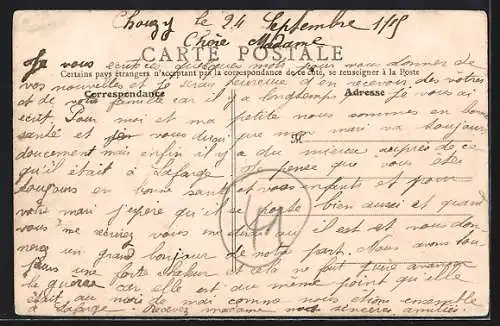 Chouzy le 24 Septembre 1915
Chère Madame
CARTE POSTALE
Je vous écrit ces quelques mots pour vous donner de
Certains pays étrangers n'acceptant pas la correspondance de ce côté, se renseigner à la Poste
vos nouvelles et je serai heureuse d'en recevoir des vôtres
Correspondance
Adresse
et de votre famille car il y a longtemps que je vous ai
écrit. Pour moi et ma petite nous sommes en bonne
M
santé et vous dirai que mon mari va toujours
doucement mais enfin il y a du mieux auprès de ce
qu'il était à Lafarge et pense que vous êtes
toujours en bonne santé et vos enfants et pour
votre mari j'espère qu'il se porte bien aussi et quand
vous me récrirez vous me direz où il est et vous don-
nerez un grand bonjour de notre part. Nous avons tou-
jours une forte chaleur cela ne fait guère avancer
la guerre car elle est du même point qu'elle
était au mois de mai comme nous étions ensemble
à Lafarge. Recevez madame nos sincères amitiés.